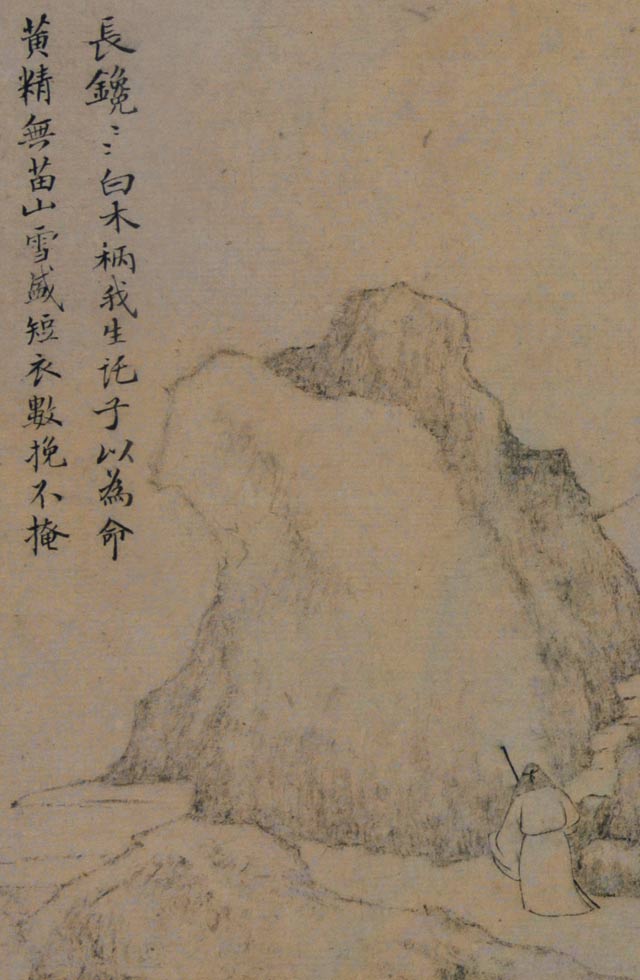 長鑱〻〻白木柄我生託子以為命
黄精無苗山雪盛短衣數挽不掩